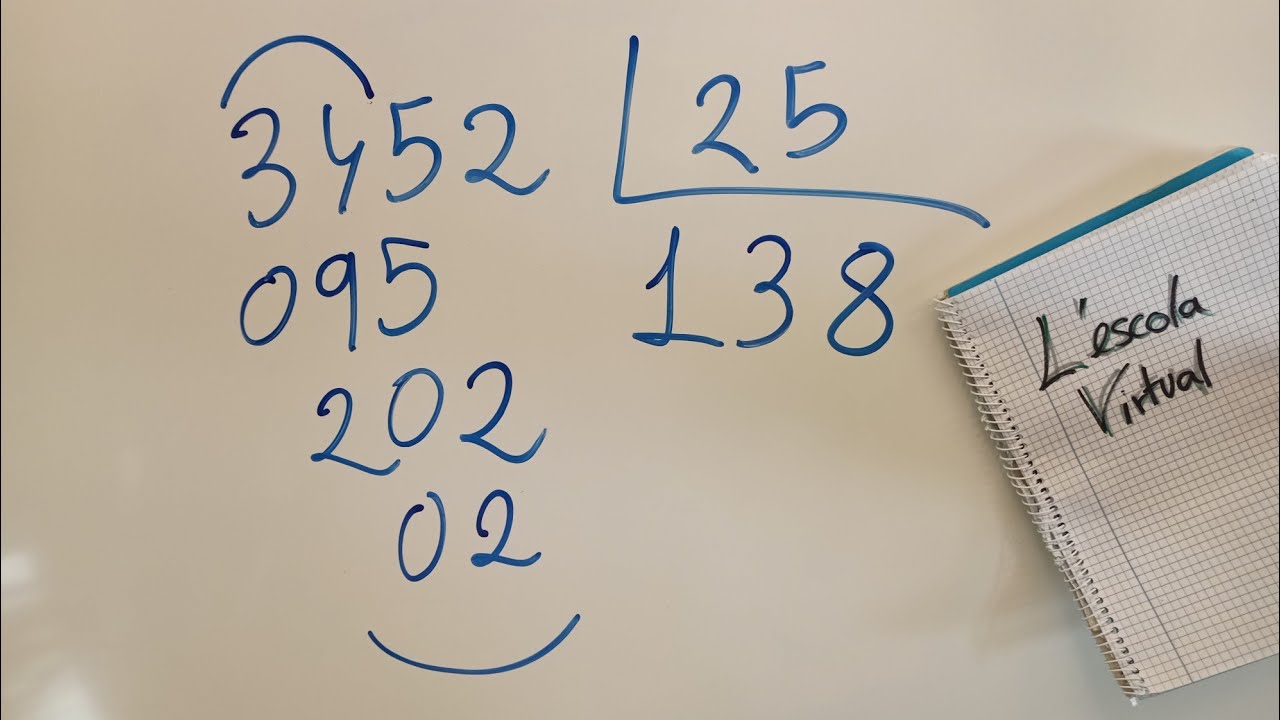 3452 25
095 138
202
02
L'escola
Virtual